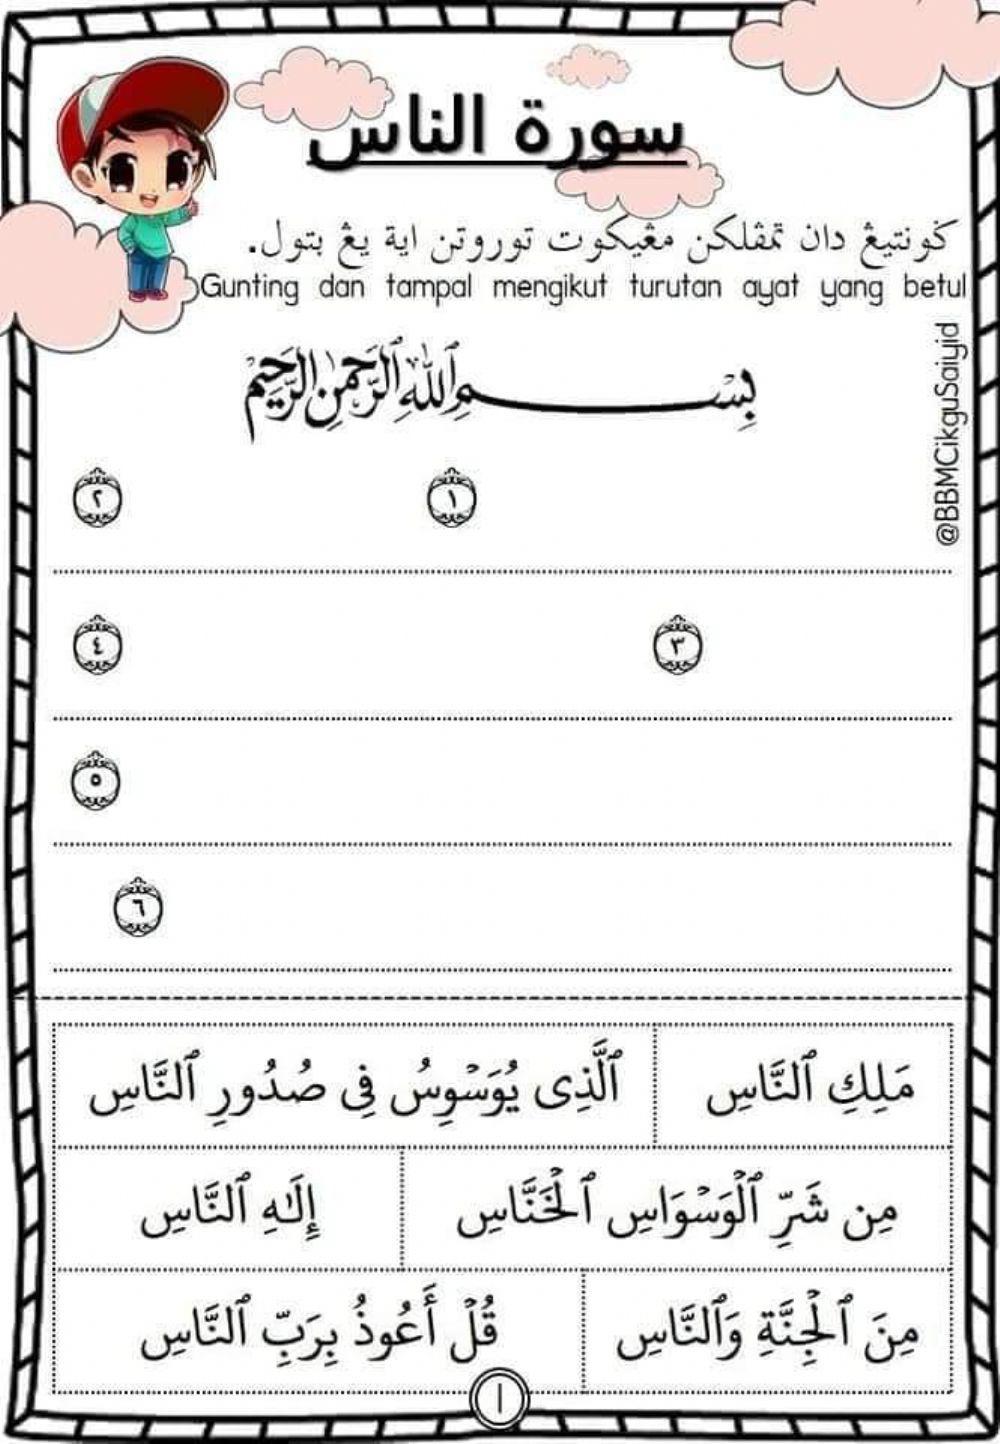 سورة الناس
ݢونتيڠ دان تمڤلكن مڠيكوت توروتن اية يڠ بتول.
Gunting dan tampal mengikut turutan ayat yang betul
@BBMCikguSaiyid
بِسْمِ ٱللَّهِ ٱلرَّحْمَٰنِ ٱلرَّحِيمِ
١ ٢
٣ ٤
٥
٦
مَلِكِ ٱلنَّاسِ ٱلَّذِى يُوَسْوِسُ فِى صُدُورِ ٱلنَّاسِ
مِن شَرِّ ٱلْوَسْوَاسِ ٱلْخَنَّاسِ إِلَٰهِ ٱلنَّاسِ
مِنَ ٱلْجِنَّةِ وَٱلنَّاسِ قُلْ أَعُوذُ بِرَبِّ ٱلنَّاسِ
١